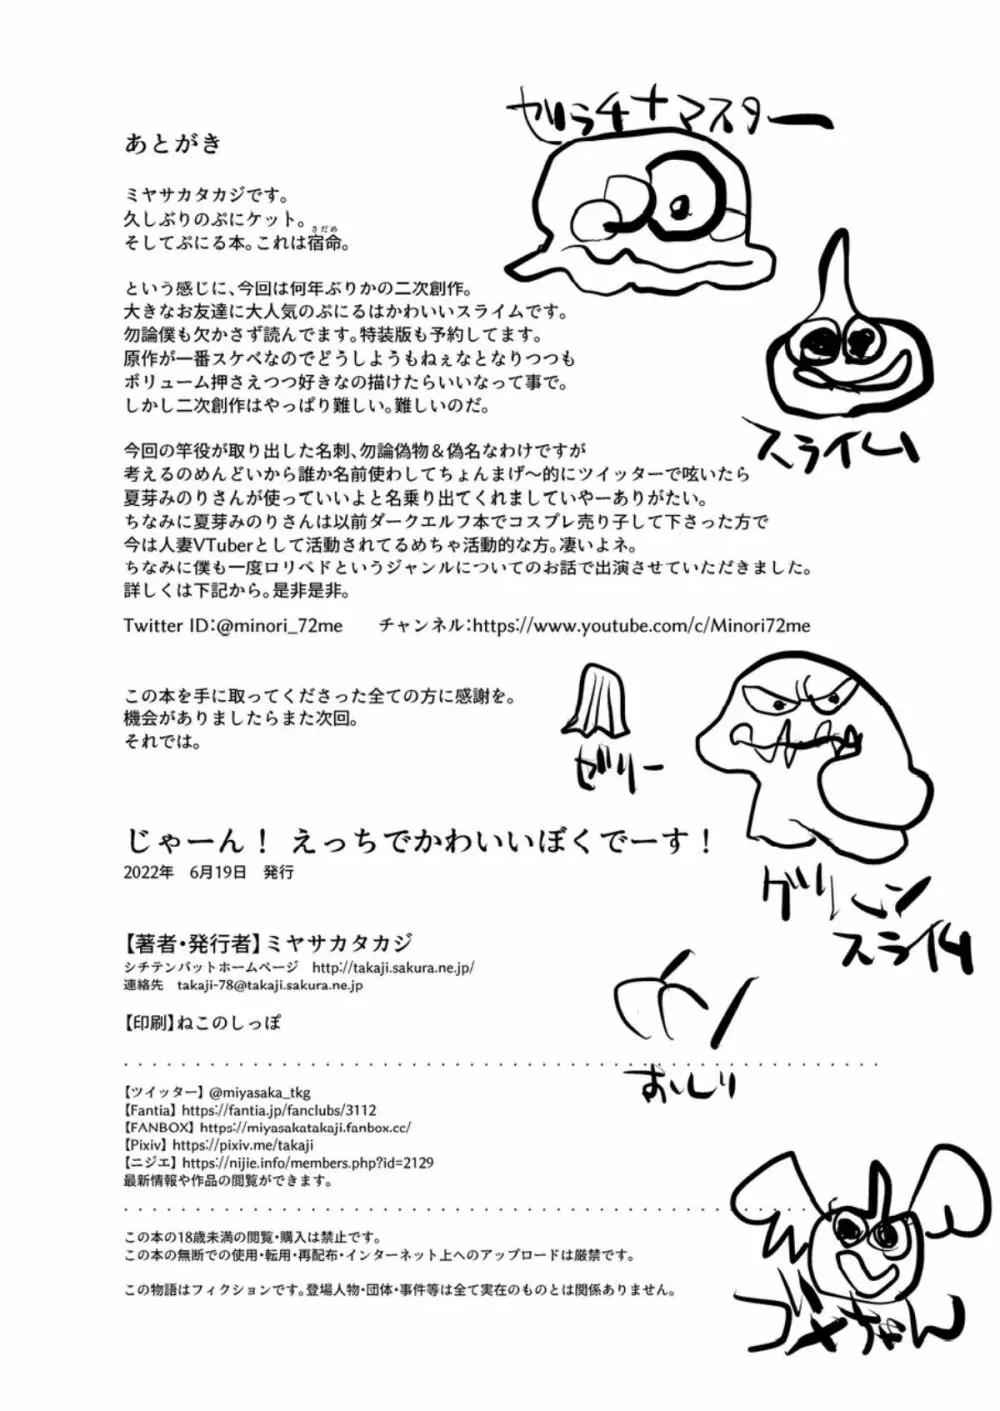 ゼリラチナマスター
あとがき
ミヤサカタカジです。
久しぶりのぷにケット。
そしてぷにる本。これは宿命。
さだめ
という感じに、今回は何年ぶりかの二次創作。
大きなお友達に大人気のぷにるはかわいいスライムです。
勿論僕も欠かさず読んでます。特装版も予約してます。
原作が一番スケベなのでどうしようもねぇなとなりつつも
ボリューム押さえつつ好きなの描けたらいいなって事で。
しかし二次創作はやっぱり難しい。難しいのだ。
スライム
今回の竿役が取り出した名刺、勿論偽物＆偽名なわけですが
考えるのめんどいから誰か名前使わしてちょんまげ～的にツイッターで呟いたら
夏芽みのりさんが使っていいよと名乗り出てくれましていやーありがたい。
ちなみに夏芽みのりさんは以前ダークエルフ本でコスプレ売り子して下さった方で
今は人妻VTuberとして活動されてるめちゃ活動的な方。凄いよネ。
ちなみに僕も一度ロリベドというジャンルについてのお話で出演させていただきました。
詳しくは下記から。是非是非。
Twitter ID：@minori_72me　チャンネル：https://www.youtube.com/c/Minori72me
この本を手に取ってくださった全ての方に感謝を。
機会がありましたらまた次回。
それでは。
ゼリー
じゃーん！ えっちでかわいいぼくでーす！
2022年　6月19日　発行
グリーン
スライム
【著者・発行者】ミヤサカタカジ
シチテンバットホームページ　http://takaji.sakura.ne.jp/
連絡先　takaji-78@takaji.sakura.ne.jp
【印刷】ねこのしっぽ
【ツイッター】@miyasaka_tkg
【Fantia】https://fantia.jp/fanclubs/3112
【FANBOX】https://miyasakatakaji.fanbox.cc/
【Pixiv】https://pixiv.me/takaji
【ニジエ】https://nijie.info/members.php?id=2129
最新情報や作品の閲覧ができます。
この本の18歳未満の閲覧・購入は禁止です。
この本の無断での使用・転用・再配布・インターネット上へのアップロードは厳禁です。
この物語はフィクションです。登場人物・団体・事件等は全て実在のものとは関係ありません。
ゴメちゃん